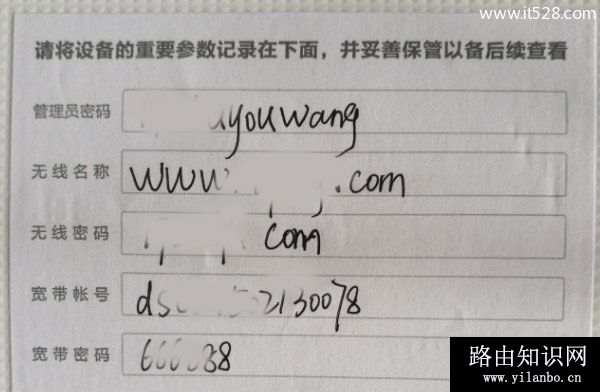 www.it528.com
请将设备的重要参数记录在下面，并妥善保管以备后续查看
管理员密码 youwang
无线名称 www. .com
无线密码 com
宽带帐号 ds 2130078
宽带密码
路由知识网
www.yilanbo.cn